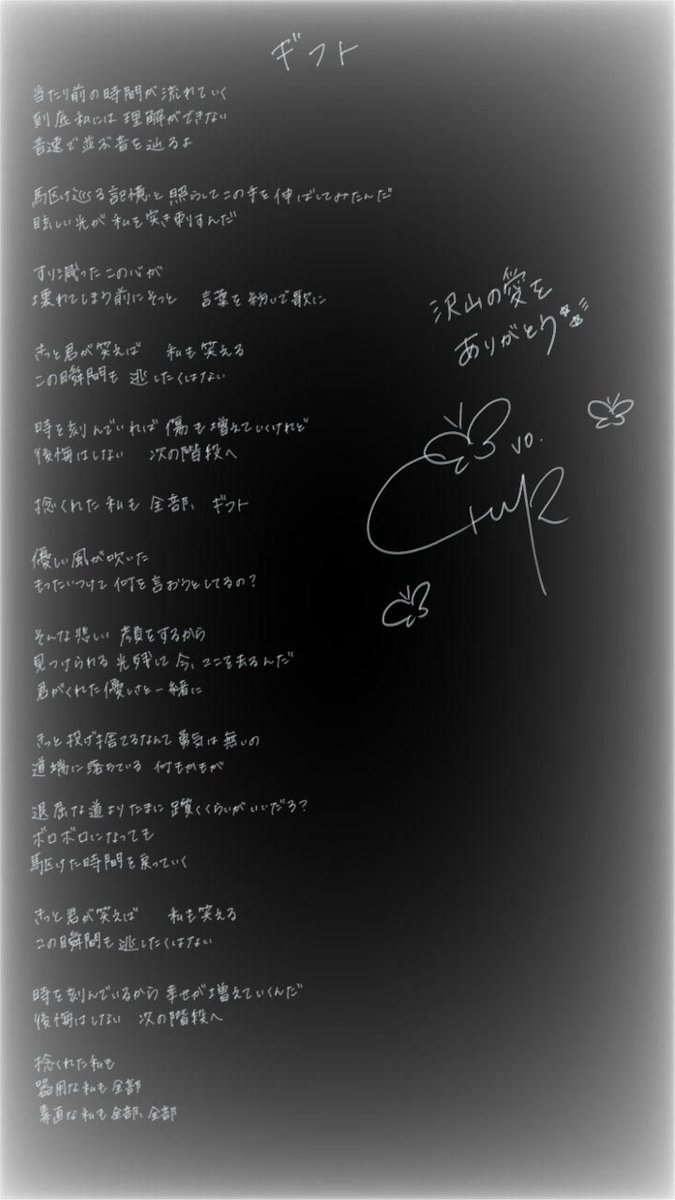 ギフト
当たり前の時間が流れていく
到底私には理解ができない
音速で並ぶ音を辿るよ
駆け巡る記憶と照らしてこの手を伸ばしてみたんだ
眩しい光が私を突き刺すんだ
すり減ったこの心が
壊れてしまう前にそっと 言葉を紡いで歌に
きっと君が笑えば 私も笑える
この瞬間も逃したくはない
時を刻んでいれば傷も増えていくけれど
後悔はしない 次の階段へ
捻くれた私も全部、ギフト
優しい風が吹いた
もったいつけて何を言おうとしてるの?
そんな悲しい顔をするから
見つけられる光残して今、ココを去るんだ
君がくれた優しさと一緒に
きっと投げ捨てるなんて勇気は無いの
道端に落ちている 何もかもが
退屈な道よりたまに躓くくらいがいいだろ?
ボロボロになっても
駆けた時間を戻っていく
きっと君が笑えば 私も笑える
この瞬間も逃したくはない
時を刻んでいるから幸せが増えていくんだ
後悔はしない 次の階段へ
捻くれた私も
器用な私も全部
素直な私も全部、全部
沢山の愛を
ありがとう
vo.